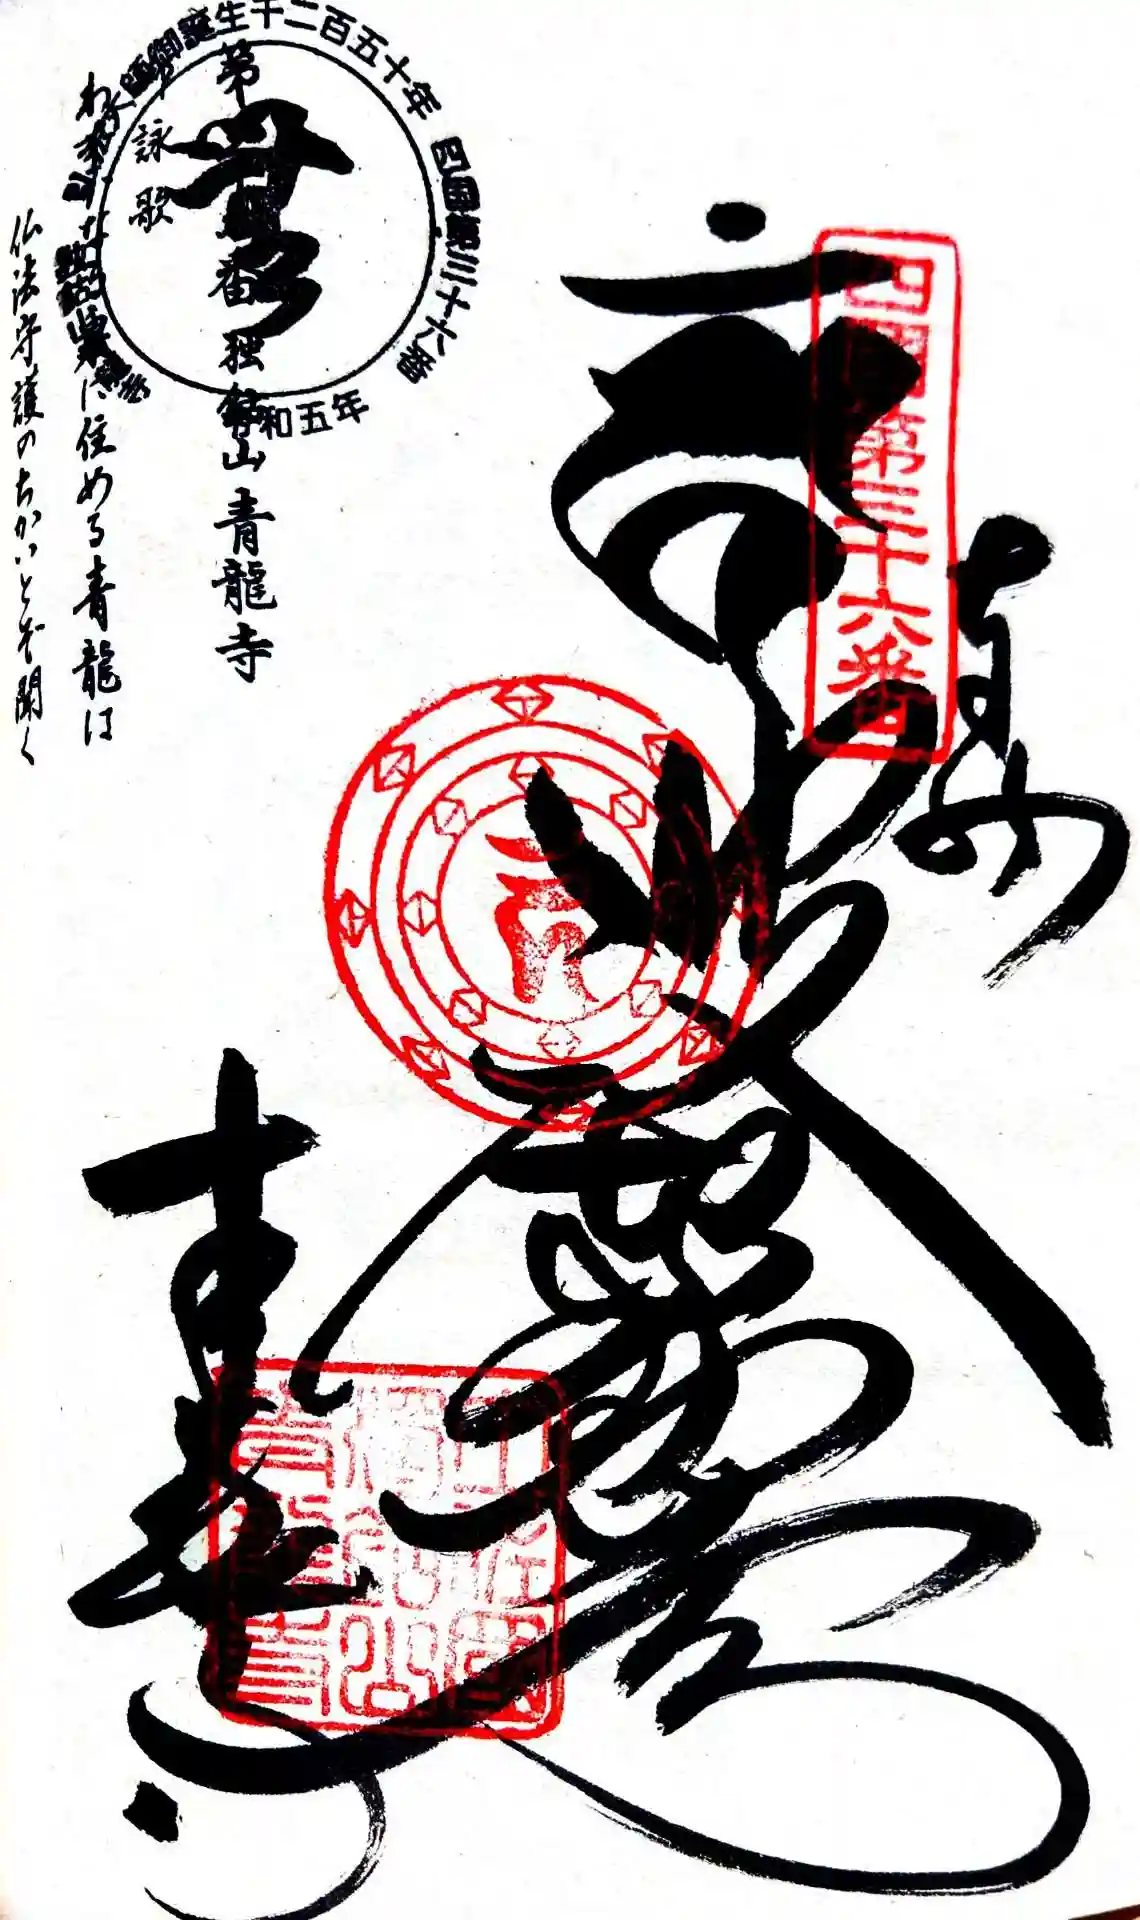 奉納
四国第三十六番
波切不動明王
青龍寺
独鈷山
青龍寺
第卅六番 独鈷山 青龍寺
御詠歌
わずかなる泉に住める青龍は
仏法守護のちかいとぞ聞く
弘法大師御誕生千二百五十年
四国第三十六番
令和五年